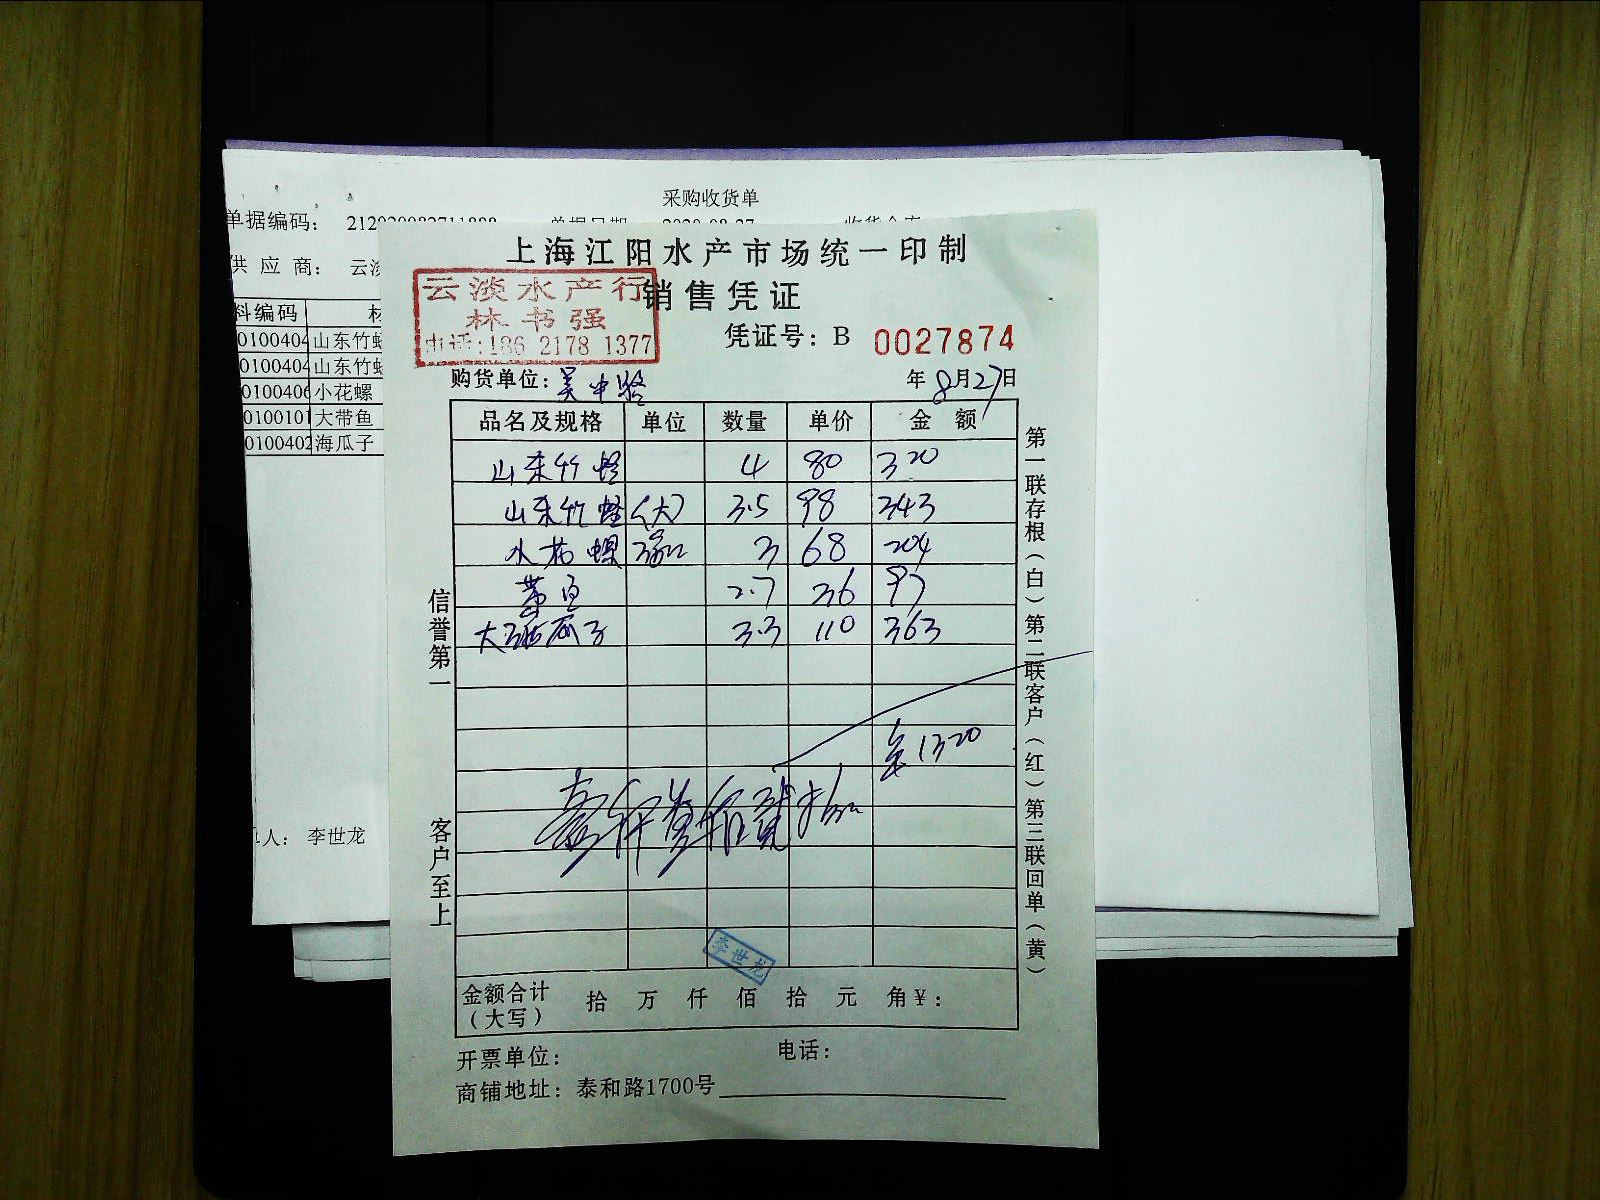 采购收货单
单据编码： 212020082711888 单据日期 2020-08-27 收货仓库
供 应 商： 云淡
料编码 材
0100404 山东竹蛏
0100404 山东竹蛏
0100406 小花螺
0100101 大带鱼
0100402 海瓜子
人： 李世龙
上海江阳水产市场统一印制
销售凭证
云淡水产行
林书强
电话:186 2178 1377
凭证号：B 0027874
购货单位：吴中路 年8月27日
品名及规格 单位 数量 单价 金 额
山东竹蛏 4 80 320
山东竹蛏(大) 3.5 98 343
小花螺 3 68 204
带鱼 2.7 36 97
大海瓜子 3.3 110 363
1320
壹仟叁佰贰拾
李世龙
金额合计（大写） 拾 万 仟 佰 拾 元 角￥：
开票单位： 电话：
商铺地址：泰和路1700号
信誉第一
客户至上
第一联存根（白）第二联客户（红）第三联回单（黄）